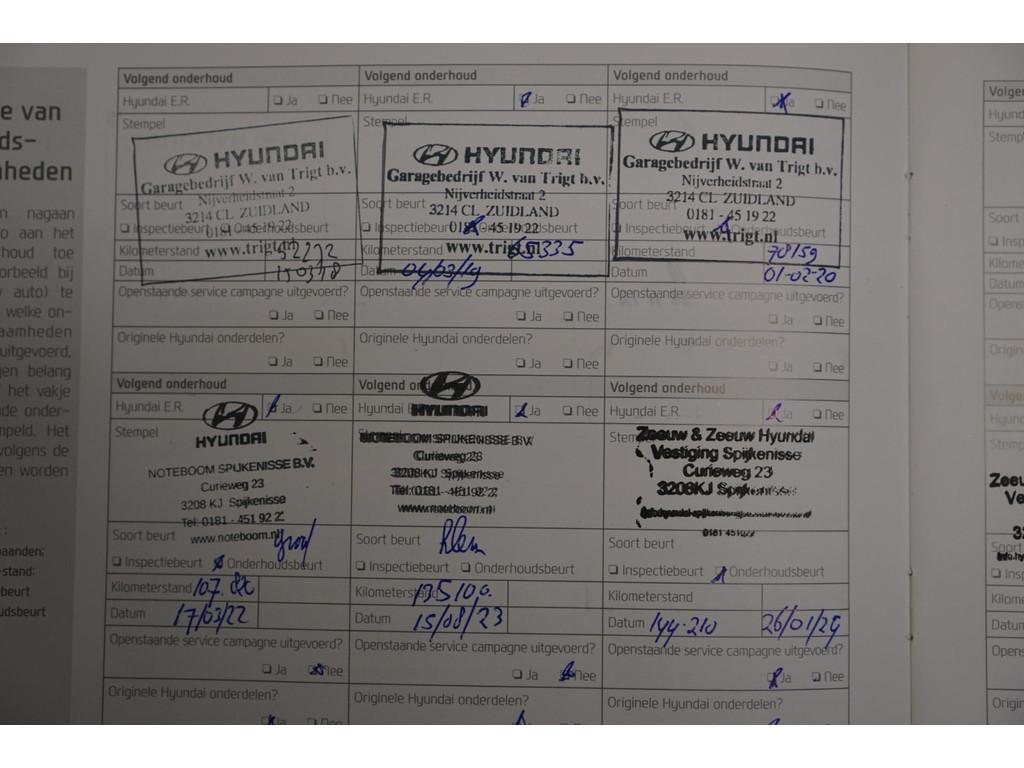 e van
ds-
nheden
n nagaan
o aan het
houd toe
orbeeld bij
auto) te
welke on-
aamheden
uitgevoerd,
gen belang
het vakje
de onder-
mpeld. Het
volgens de
en worden
aanden:
-stand:
beurt
udsbeurt
Volgend onderhoud
Hyundai E.R. Ja Nee
Stempel
HYUNDAI
Garagebedrijf W. van Trigt b.v.
Nijverheidstraat 2
3214 CL ZUIDLAND
Soort beurt
0181 - 45 19 22
Inspectiebeurt Onderhoudsbeurt
www.trigt.nl
Kilometerstand 52222
Datum 150318
Openstaande service campagne uitgevoerd?
Ja Nee
Originele Hyundai onderdelen?
Ja Nee
Volgend onderhoud
Hyundai E.R. Ja Nee
Stempel
HYUNDAI
Garagebedrijf W. van Trigt b.v.
Nijverheidstraat 2
3214 CL ZUIDLAND
Soort beurt
0181 - 45 19 22
Inspectiebeurt Onderhoudsbeurt
www.trigt.nl
Kilometerstand 65335
Datum 04/03/19
Openstaande service campagne uitgevoerd?
Ja Nee
Originele Hyundai onderdelen?
Ja Nee
Volgend onderhoud
Hyundai E.R. Ja Nee
Stempel
HYUNDAI
Garagebedrijf W. van Trigt b.v.
Nijverheidstraat 2
3214 CL ZUIDLAND
Soort beurt
0181 - 45 19 22
Inspectiebeurt Onderhoudsbeurt
www.trigt.nl
Kilometerstand 78159
Datum 01-02-20
Openstaande service campagne uitgevoerd?
Ja Nee
Originele Hyundai onderdelen?
Ja Nee
Volgend onderhoud
Hyundai E.R. Ja Nee
Stempel
HYUNDAI
NOTEBOOM SPIJKENISSE B.V.
Curieweg 23
3208 KJ Spijkenisse
Tel: 0181 - 451 92 2
www.noteboom.nl
Soort beurt groot
Inspectiebeurt Onderhoudsbeurt
Kilometerstand 107.
Datum 17/03/22
Openstaande service campagne uitgevoerd?
Ja Nee
Originele Hyundai onderdelen?
Ja Nee
Volgend onderhoud
Hyundai E.R. Ja Nee
HYUNDAI
Stempel
NOTEBOOM SPIJKENISSE B.V.
Curieweg 23
3208 KJ Spijkenisse
Tel: 0181 - 451 92 2
www.noteboom.nl
Soort beurt Klein
Inspectiebeurt Onderhoudsbeurt
Kilometerstand 135100.
Datum 15/08/23
Openstaande service campagne uitgevoerd?
Ja Nee
Originele Hyundai onderdelen?
Volgend onderhoud
Hyundai E.R. Ja Nee
Stempel
Zeeuw & Zeeuw Hyundai
Vestiging Spijkenisse
Curieweg 23
3208KJ Spijkenisse
Soort beurt
Inspectiebeurt Onderhoudsbeurt
Kilometerstand
Datum 144-210 26/01/24
Openstaande service campagne uitgevoerd?
Ja Nee
Originele Hyundai onderdelen?
Volge
Hyund
Stemp
Soort
Insp
Kilome
Datum
Opens
Origin
Volge
Hyund
Stemp
Zeeu
Ve
Soort
Insp
Kilome
Datum
Opens
Origin